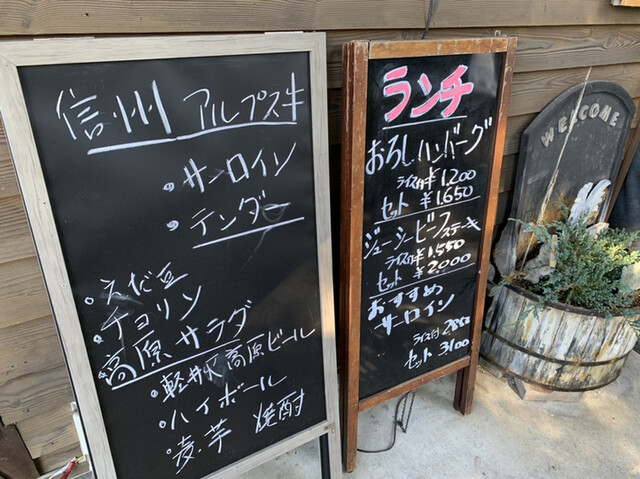 信州 アルプス牛
・サーロイン
・テンダー
・えだ豆
・チョリソ
・高原サラダ
・軽井沢高原ビール
・ハイボール
・麦.芋 焼酎
ランチ
おろしハンバーグ
ライス付¥1,200
セット ¥1,650
ジューシービーフステーキ
ライス付¥1,550
セット ¥2000
おすすめ
サーロイン
ライス付 2850
セット 3,100
WELCOME